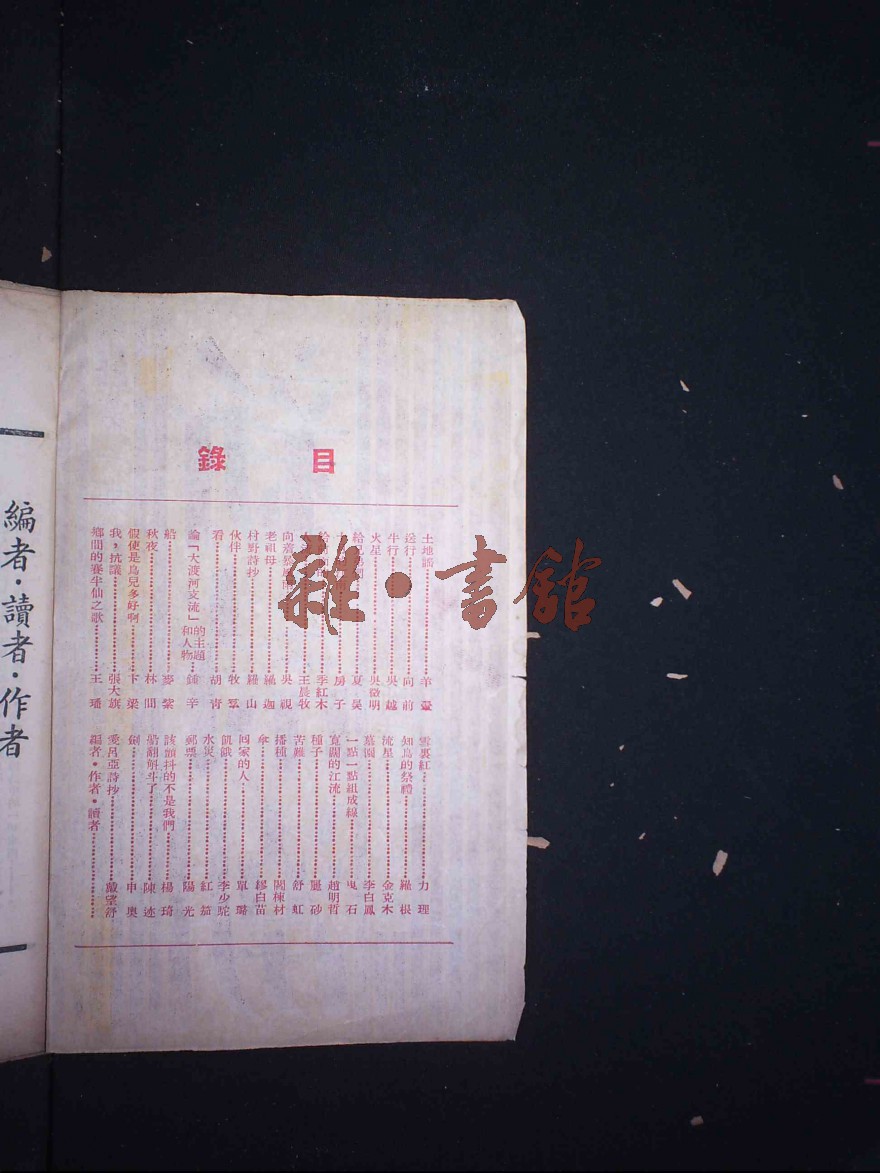 目錄
土地謠 羊翬
送行 向前
牛行 吳越
火星 吳徵明
夏昊
房子
季紅木
王晨牧
吳視
老祖母 羅迦
村野詩抄 羅山
伙伴 牧
看 胡青
論「大渡河支流」的主題和人物 鍾辛
船 麥紫
秋夜 林間
假使是鳥兒多好啊 卞梁
我，抗議 張大旗
鄉間的賽半仙之歌 王璠
雪裏紅 力理
知鳥的祭禮 羅根
流星 金克木
墓園 李白鳳
一點一點組成線 曳石
寬闊的江流 趙明哲
種子 屬砂
苦難 舒虹
播種 闕棟材
傘 繆白苗
回家的人 單璐
飢餓 李少駝
水災 紅茄
郵票 陽光
該顫抖的不是我們 楊琦
船翻斛斗了 陳迹
劍 申奧
愛呂亞詩抄 戴望舒
編者・作者・讀者
編者・讀者・作者
雜・書館